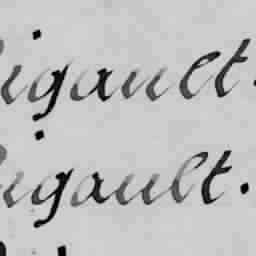 igault.
igault.